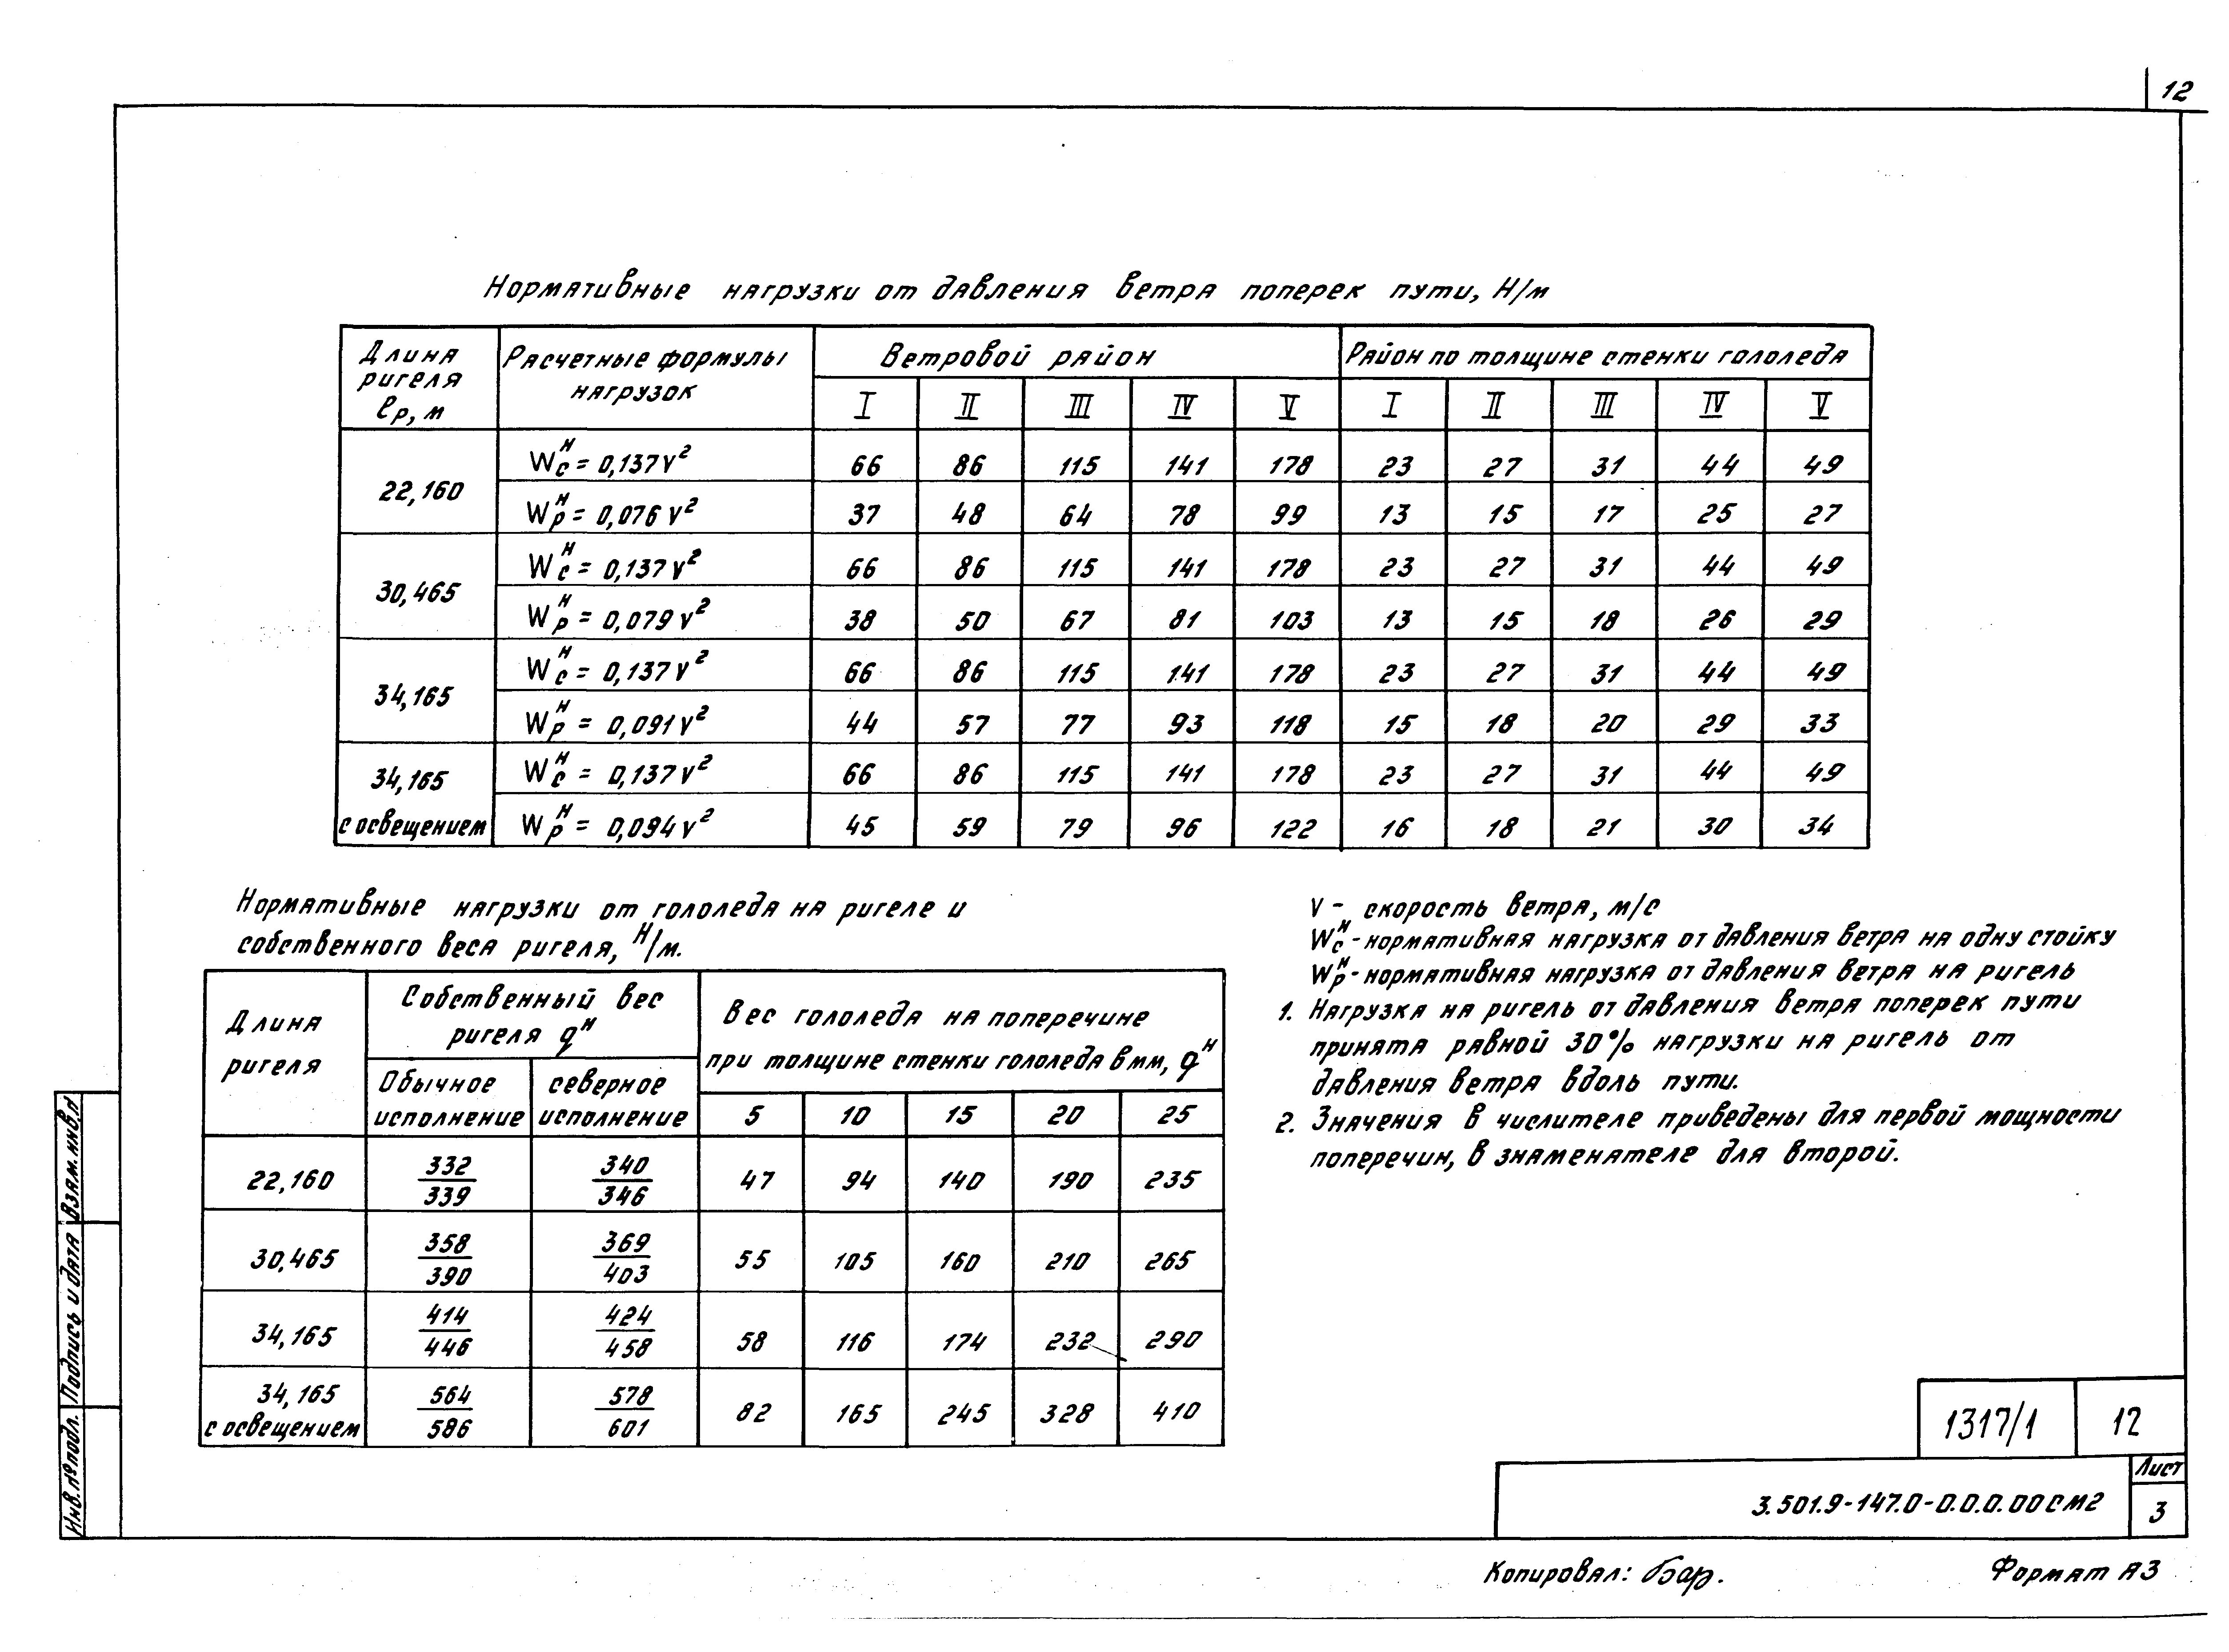 12
Нормативные нагрузки от давления ветра поперек пути, Н/м
Длина ригеля ℓр, м | Расчетные формулы нагрузок | Ветровой район | Район по толщине стенки гололеда
I | II | III | IV | V | I | II | III | IV | V
22,160 | Wсᴴ = 0,137V² | 66 | 86 | 115 | 141 | 178 | 23 | 27 | 31 | 44 | 49
Wрᴴ = 0,076V² | 37 | 48 | 64 | 78 | 99 | 13 | 15 | 17 | 25 | 27
30,465 | Wсᴴ = 0,137V² | 66 | 86 | 115 | 141 | 178 | 23 | 27 | 31 | 44 | 49
Wрᴴ = 0,079V² | 38 | 50 | 67 | 81 | 103 | 13 | 15 | 18 | 26 | 29
34,165 | Wсᴴ = 0,137V² | 66 | 86 | 115 | 141 | 178 | 23 | 27 | 31 | 44 | 49
Wрᴴ = 0,091V² | 44 | 57 | 77 | 93 | 118 | 15 | 18 | 20 | 29 | 33
34,165 с освещением | Wсᴴ = 0,137V² | 66 | 86 | 115 | 141 | 178 | 23 | 27 | 31 | 44 | 49
Wрᴴ = 0,094V² | 45 | 59 | 79 | 96 | 122 | 16 | 18 | 21 | 30 | 34
Нормативные нагрузки от гололеда на ригеле и
собственного веса ригеля, Н/м.
Длина ригеля | Собственный вес ригеля qᴴ | Вес гололеда на поперечине при толщине стенки гололеда в мм, qᴴ
Обычное исполнение | северное исполнение | 5 | 10 | 15 | 20 | 25
22,160 | 332/339 | 340/346 | 47 | 94 | 140 | 190 | 235
30,465 | 358/390 | 369/403 | 55 | 105 | 160 | 210 | 265
34,165 | 414/446 | 424/458 | 58 | 116 | 174 | 232 | 290
34,165 с освещением | 564/586 | 578/601 | 82 | 165 | 245 | 328 | 410
V - скорость ветра, м/с
Wсᴴ - нормативная нагрузка от давления ветра на одну стойку
Wрᴴ - нормативная нагрузка от давления ветра на ригель
1. Нагрузка на ригель от давления ветра поперек пути
принята равной 30% нагрузки на ригель от
давления ветра вдоль пути.
2. Значения в числителе приведены для первой мощности
поперечин, в знаменателе для второй.
Инв.№подл. Подпись и дата Взам.инв.№
1317/1 12
3.501.9-147.0-0.0.0.00СМ2
Лист
3
Копировал: Бар.
Формат А3